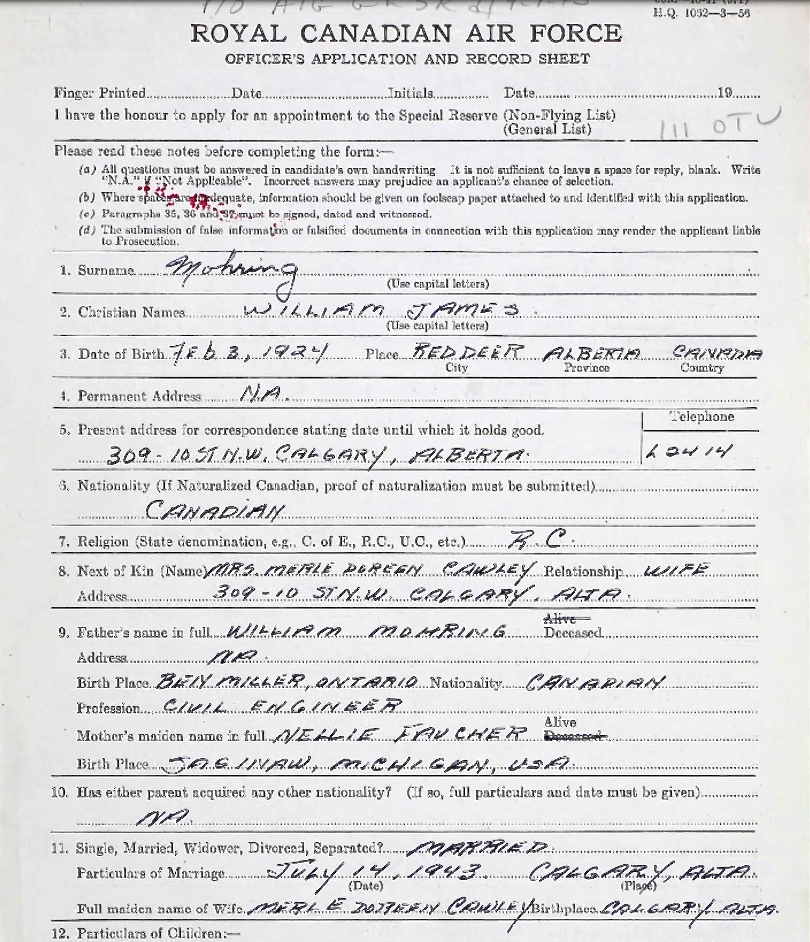 H.Q. 1032—3—56
ROYAL CANADIAN AIR FORCE
OFFICER'S APPLICATION AND RECORD SHEET
Finger Printed Date Initials Date 19
I have the honour to apply for an appointment to the Special Reserve (Non-Flying List)
(General List)
111 OTU
Please read these notes before completing the form:—
(a) All questions must be answered in candidate's own handwriting It is not sufficient to leave a space for reply, blank. Write
"N.A." if "Not Applicable". Incorrect answers may prejudice an applicant's chance of selection.
(b) Where spaces are inadequate, information should be given on foolscap paper attached to and identified with this application.
(c) Paragraphs 35, 36 and 37 must be signed, dated and witnessed.
(d) The submission of false information or falsified documents in connection with this application may render the applicant liable
to Prosecution.
1. Surname Mohring
(Use capital letters)
2. Christian Names WILLIAM JAMES
(Use capital letters)
3. Date of Birth FEB 3, 1924 Place RED DEER ALBERTA CANADA
City Province Country
4. Permanent Address N.A.
5. Present address for correspondence stating date until which it holds good. Telephone
309-10 ST N.W. CALGARY, ALBERTA. L2414
6. Nationality (If Naturalized Canadian, proof of naturalization must be submitted)
CANADIAN
7. Religion (State denomination, e.g., C. of E., R.C., U.C., etc.) R.C.
8. Next of Kin (Name) MRS. MERLE DOREEN CAWLEY Relationship WIFE
Address 309-10 ST N.W. CALGARY, ALTA.
9. Father's name in full WILLIAM MOHRING Alive
Deceased
Address NA.
Birth Place BENMILLER, ONTARIO Nationality CANADIAN
Profession CIVIL ENGINEER
Mother's maiden name in full NELLIE FAUCHER Alive
Deceased
Birth Place SAGINAW, MICHIGAN, USA.
10. Has either parent acquired any other nationality? (If so, full particulars and date must be given)
NA.
11. Single, Married, Widower, Divorced, Separated? MARRIED.
Particulars of Marriage JULY 14, 1943 CALGARY, ALTA.
(Date) (Place)
Full maiden name of Wife MERLE DOREEN CAWLEY Birthplace CALGARY, ALTA.
12. Particulars of Children:—